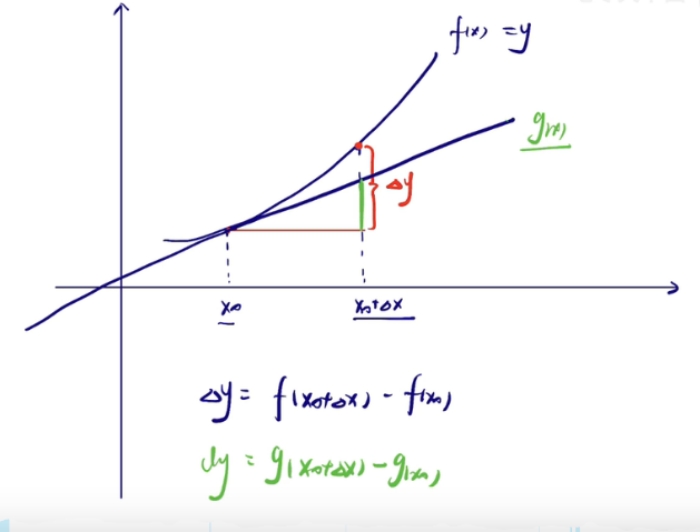 f(x) = y
g(x)
Δy
x₀
x₀+Δx
Δy = f(x₀+Δx) - f(x₀)
dy = g(x₀+Δx) - g(x₀)